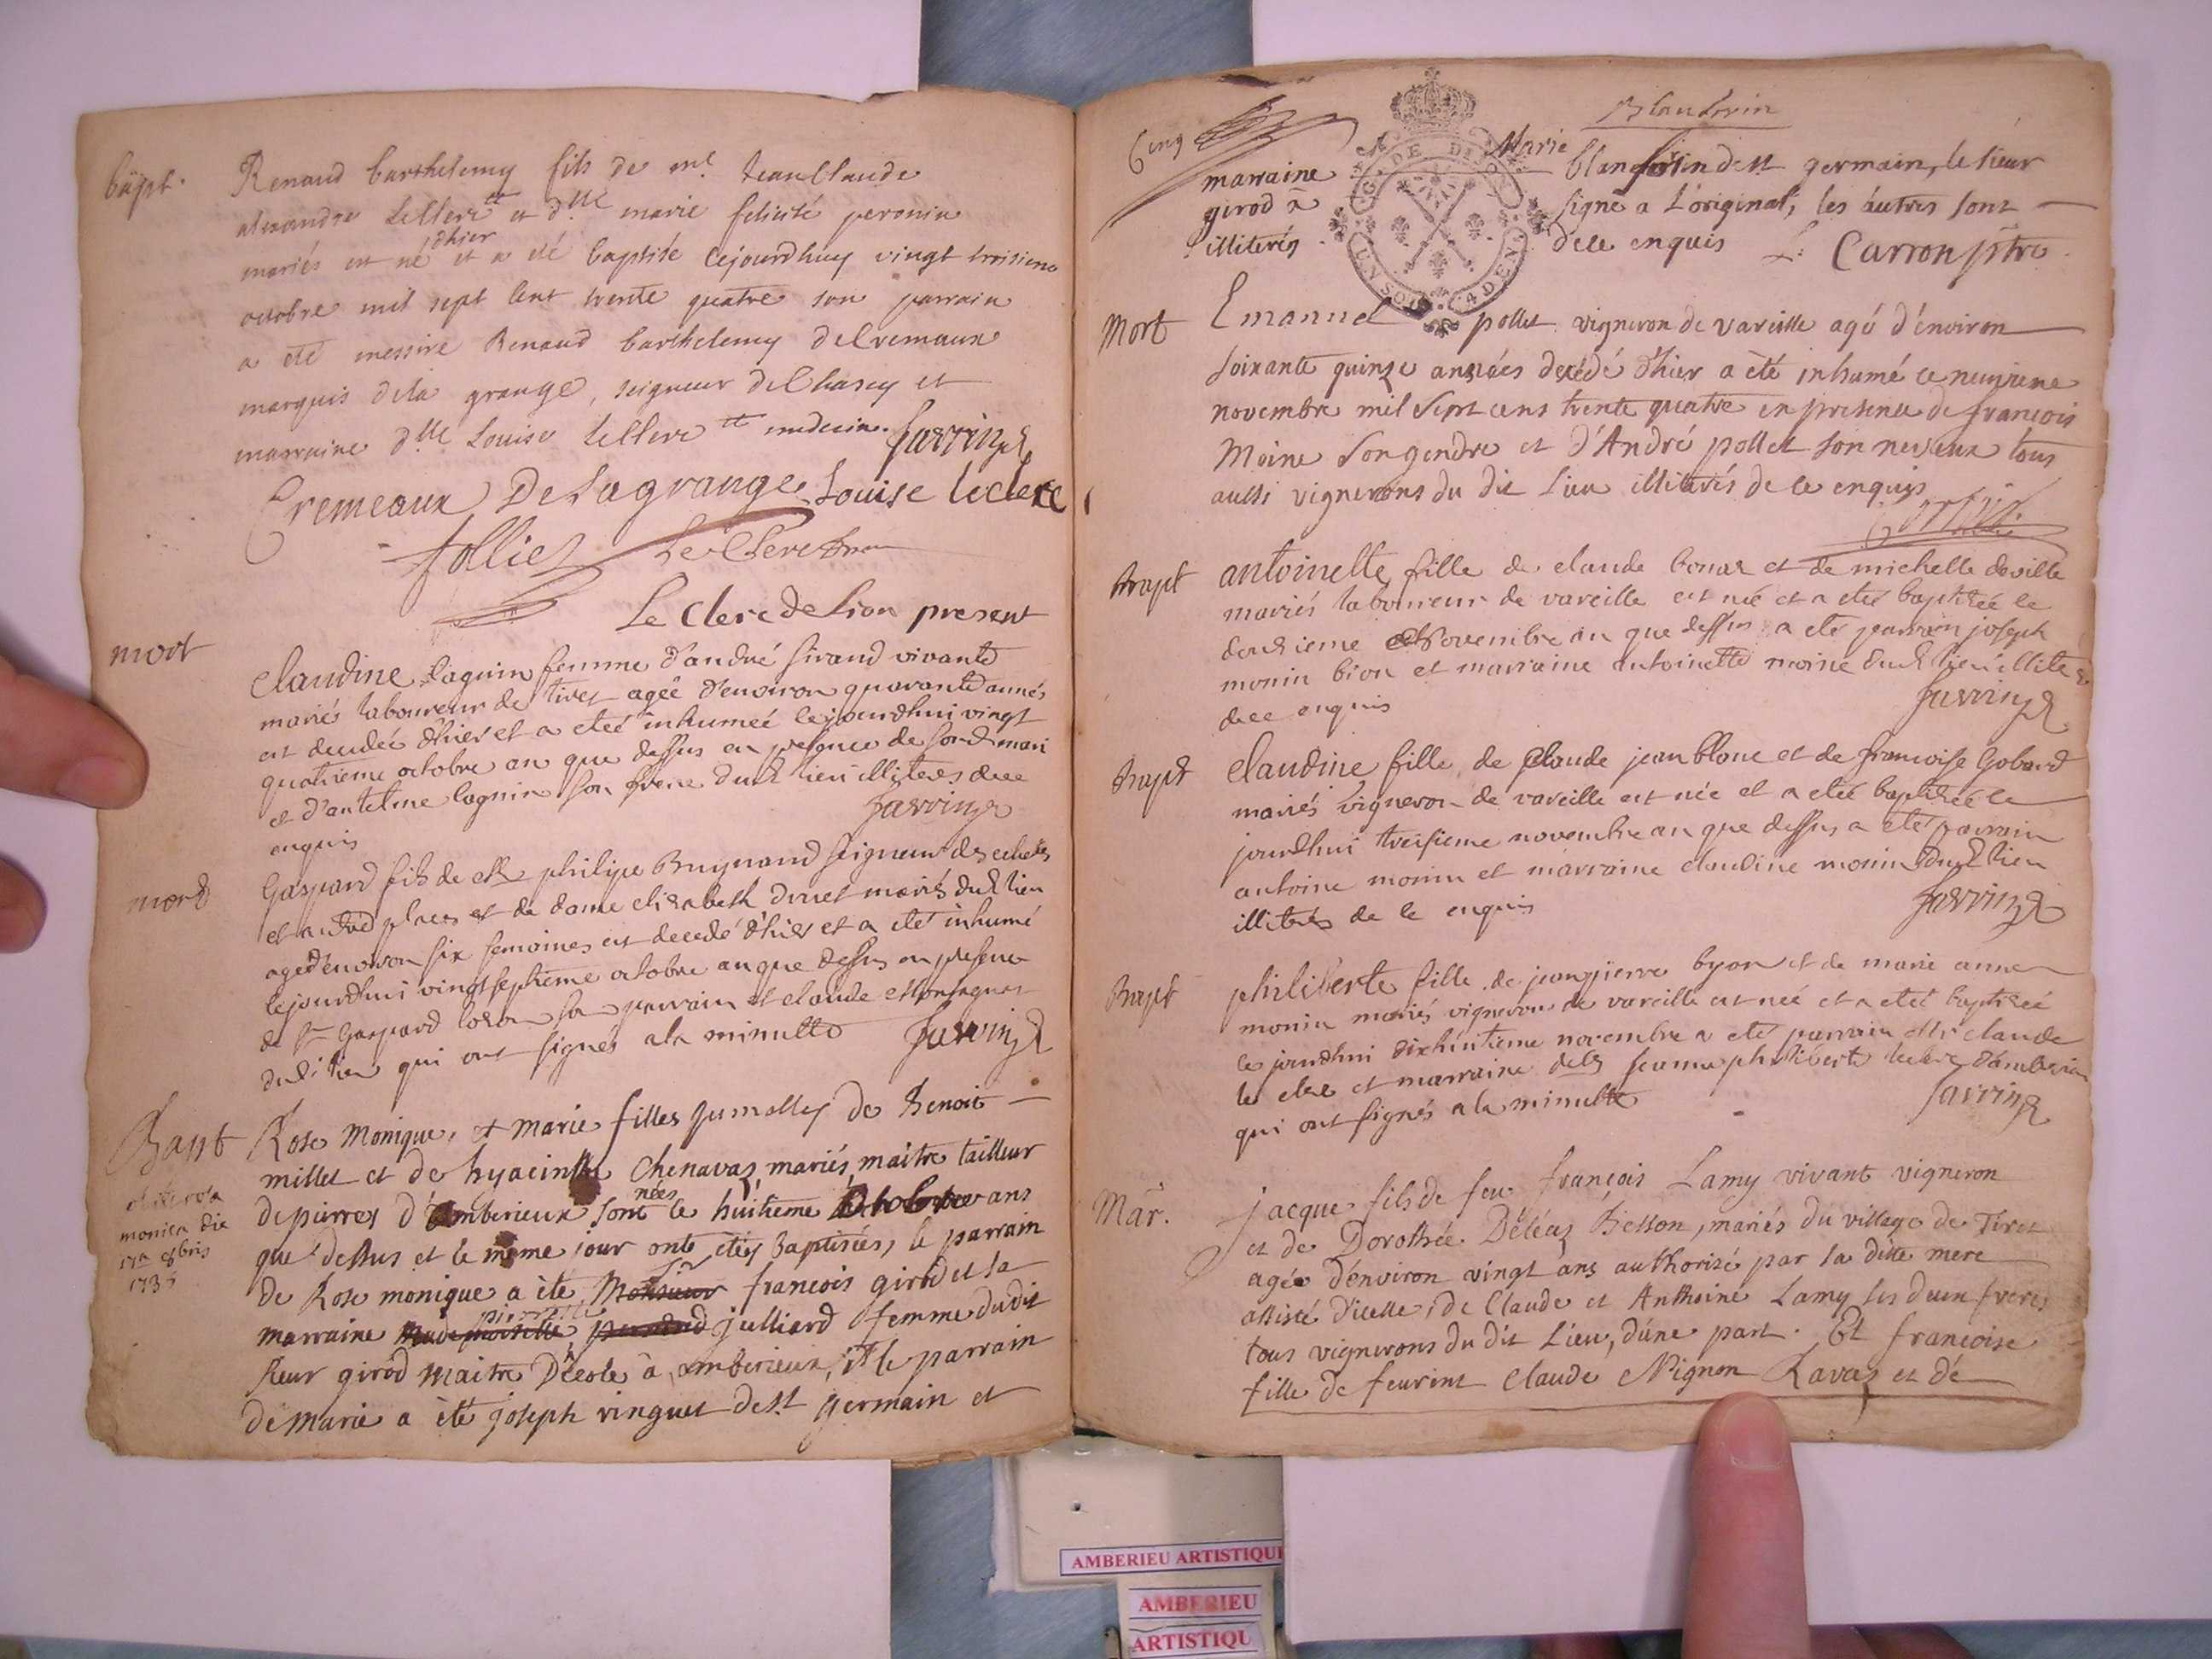 bapt.
Renaud barthelemy fils de mr. Jean Claude
alexandre Leclerc et dlle marie felicité peronin
mariés est né dhier et a eté baptisé cejourdhuy vingt troisieme
octobre mil sept cent trente quatre son parrain
a eté messire Renaud barthelemy de Cremaux
marquis dela grange, seigneur de Chasey et
marraine dlle Louise Leclerc
Cremeaux De Lagrange Louise leclerc
follies Le Clerc
Le Clerc de Lion present
mort
claudine lagnin femme d'andré sirand vivante
mariés laboureur de tiret agée d'environ quarante années
est decedée d'hier et a eteé inhumeé le jourdhui vingt
quatrieme octobre an que dessus en presence de sond mari
et d'antelme lagnin son frere dud lieu illiteres dece
enquis
mort
Gaspard fils de Mr philipe Bruynand seigneur des echelles
et autre places et de dame elisabeth mariés dud lieu
agé d'environ six semaines est decedé d'hier et a eté inhumé
le jourdhui vingt septieme octobre an que dessus en presence
de Sr Gaspard son parrain et claude
dudi lieu qui ont signés a la minutte
Bapt
Rose Monique, et marie filles jumelles de Benoit
millet et de hyacinthe Chenavaz mariés, maitre tailleur
de pierres d'Amberieux sont nées le huitieme octobre ans
que dessus et le même jour onts etéz baptisées, le parrain
de Rose monique a èté Monsieur Sr francois girod et la
marraine Mademoiselle pierrette julliard femme du dit
sieur girod maitre D'écolé à amberieux, et le parrain
dé Marie a èté joseph vinguet de st germain et
obiit rosa
monica die
17a 8bris
1735
Cinq
Blanchrin
marraine Marie blan de st germain, le sieur
girod a signé a L'original, les áutres sont
illiterés de ce enquis L: Carron ptre
GE. DE DIJON
UN SOL 4 DEN
Mort
Emanuel pollet vigneron de vareille agé d'énviron
soixante quinze années decédé d'hier a èté inhumé ce neuvieme
novembre mil sept cens trente quatre en presence de francois
Moine son gendre et d'André pollet son neveux tous
aussi vignerons du dit Lieu illiterés de ce enquis
Bapt
antoinette fille de claude bonaz et de michelle deville
mariés laboureur de vareille est né et a eteé baptiseé le
douzieme novembre an que dessus a eté parrain joseph
monin bion et marraine antoinette moine dud lieu illite
dece enquis
Bapt
claudine fille de claude jean blanc et de francoise Gobard
mariés vigneron de vareille est née et a eteé baptiseé le
jourdhui treisieme novembre an que dessus a eté parrain
antoine monin et marraine claudine monin dud lieu
illiterés de ce enquis
Bapt
philiberte fille de jeanpierre byon et de marie anne
monin mariés vigneron de vareille est neé et a eteé baptiseé
le jourdhui dixhuitieme novembre a eté parrain Mr claude
le clerc et marraine delle jeanne philiberte leclerc d'amberieu
qui ont signés a la minutte
Mar.
Jacque fils de feu françois Lamy vivant vigneron
et de Dorothée Déléaz Besson, mariés du village de Tiret
agée d'énviron vingt ans authorisé par sa ditte mere
assisté d'icelle, de Claude et Anthoine Lamy ses deux freres
tous vignerons du dit Lieu, d'úne part. Et francoise
fille de feu vint Claude Mignon Ravaz et dé
AMBERIEU ARTISTIQU
AMBERIEU
ARTISTIQU